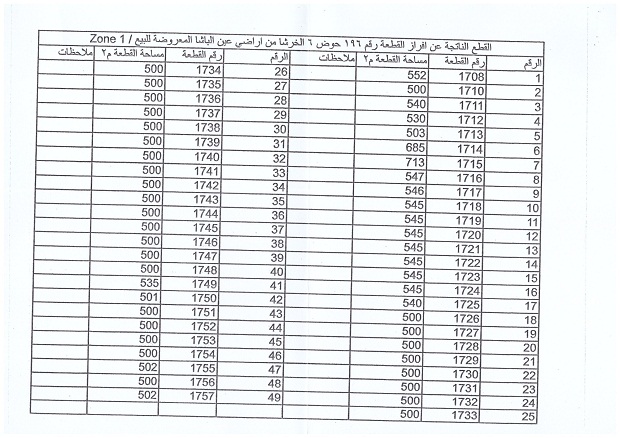 القطع الناتجة عن افراز القطعة رقم ١٩٦ حوض ٦ الخرشا من اراضي عين الباشا المعروضة للبيع / Zone 1
الرقم رقم القطعة مساحة القطعة م٢ ملاحظات الرقم رقم القطعة مساحة القطعة م٢ ملاحظات
1 1708 552 26 1734 500
2 1710 500 27 1735 500
3 1711 540 28 1736 500
4 1712 530 29 1737 500
5 1713 503 30 1738 500
6 1714 685 31 1739 500
7 1715 713 32 1740 500
8 1716 547 33 1741 500
9 1717 546 34 1742 500
10 1718 545 35 1743 500
11 1719 545 36 1744 500
12 1720 545 37 1745 500
13 1721 545 38 1746 500
14 1722 545 39 1747 500
15 1723 545 40 1748 500
16 1724 545 41 1749 535
17 1725 540 42 1750 501
18 1726 500 43 1751 500
19 1727 500 44 1752 500
20 1728 500 45 1753 500
21 1729 500 46 1754 500
22 1730 500 47 1755 502
23 1731 500 48 1756 500
24 1732 500 49 1757 502
25 1733 500